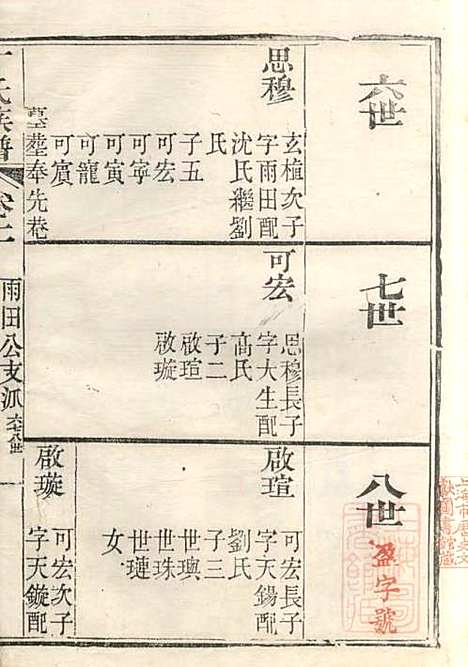 六世
思穆
玄植次子
字雨田配
沈氏繼劉
氏
子五
可宏
可寧
可寅
可龍
可賔
墓塟奉先菴
七世
可宏
思穆長子
字大生配
高氏
子二
啟瑄
啟璇
八世
啟瑄
可宏長子
字天錫配
劉氏
子三
世璵
世珠
世璉
女
啟璇
可宏次子
字天鏇配
盈字號
氏族譜
卷二
雨田公支派
六七八世
一